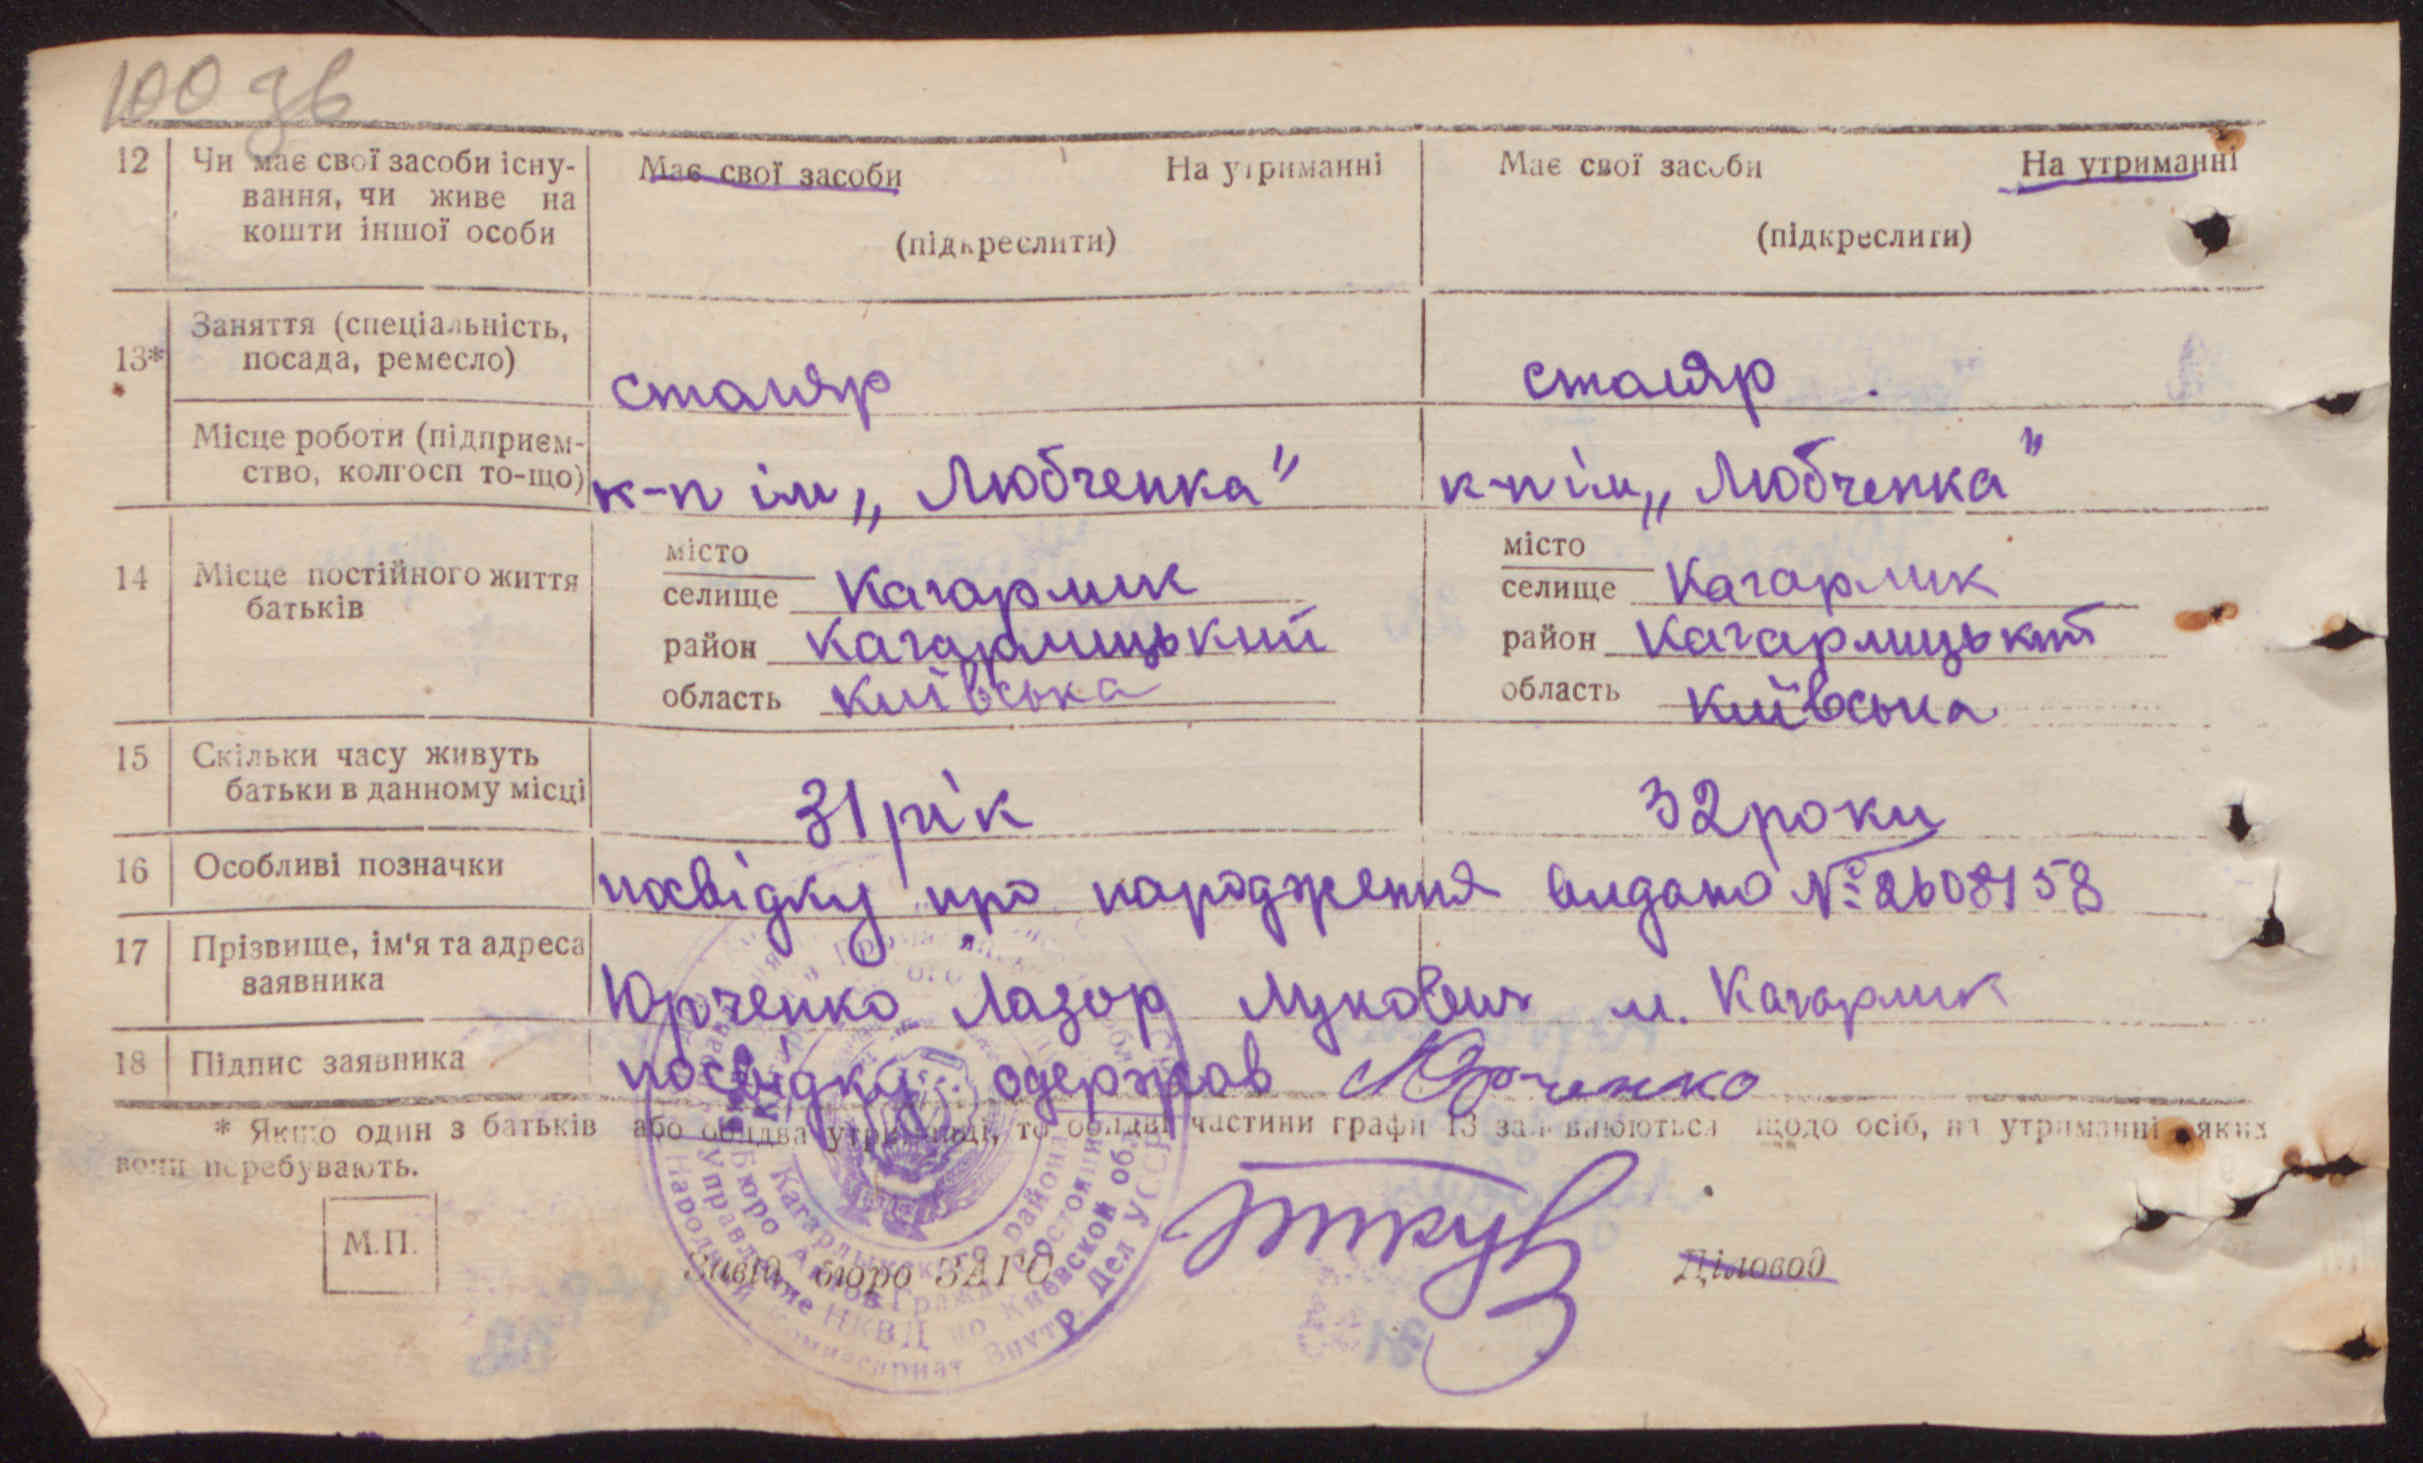 100 зв
12 Чи має свої засоби існу- Має свої засоби На утриманні Має свої засоби На утриманні
вання, чи живе на
кошти іншої особи (підкреслити) (підкреслити)
Заняття (спеціальність,
13* посада, ремесло) столяр столяр
Місце роботи (підприєм-
ство, колгосп то-що) к-п ім „Любченка" к-п ім „Любченка"
місто місто
14 Місце постійного життя селище Кагарлик селище Кагарлик
батьків район Кагарлицький район Кагарлицький
область Київська область Київська
15 Скільки часу живуть
батьки в данному місці 31 рік 32 роки
16 Особливі позначки посвідку про народження видано № 2608158
17 Прізвище, ім'я та адреса
заявника Юрченко Лазор Лукович м. Кагарлик
18 Підпис заявника посвідку одержав Юрченко
* Якщо один з батьків або обидва утриманці, то обидві частини графи 13 заповнюються щодо осіб, на утриманні яких
вони перебувають.
М.П.
Завід. бюро ЗАГС Діловод
Народный Комиссариат Внутр. Дел УССР
Управление НКВД по Киевской обл.
Бюро Актов Гражд. Состояния
Кагарлыкского района